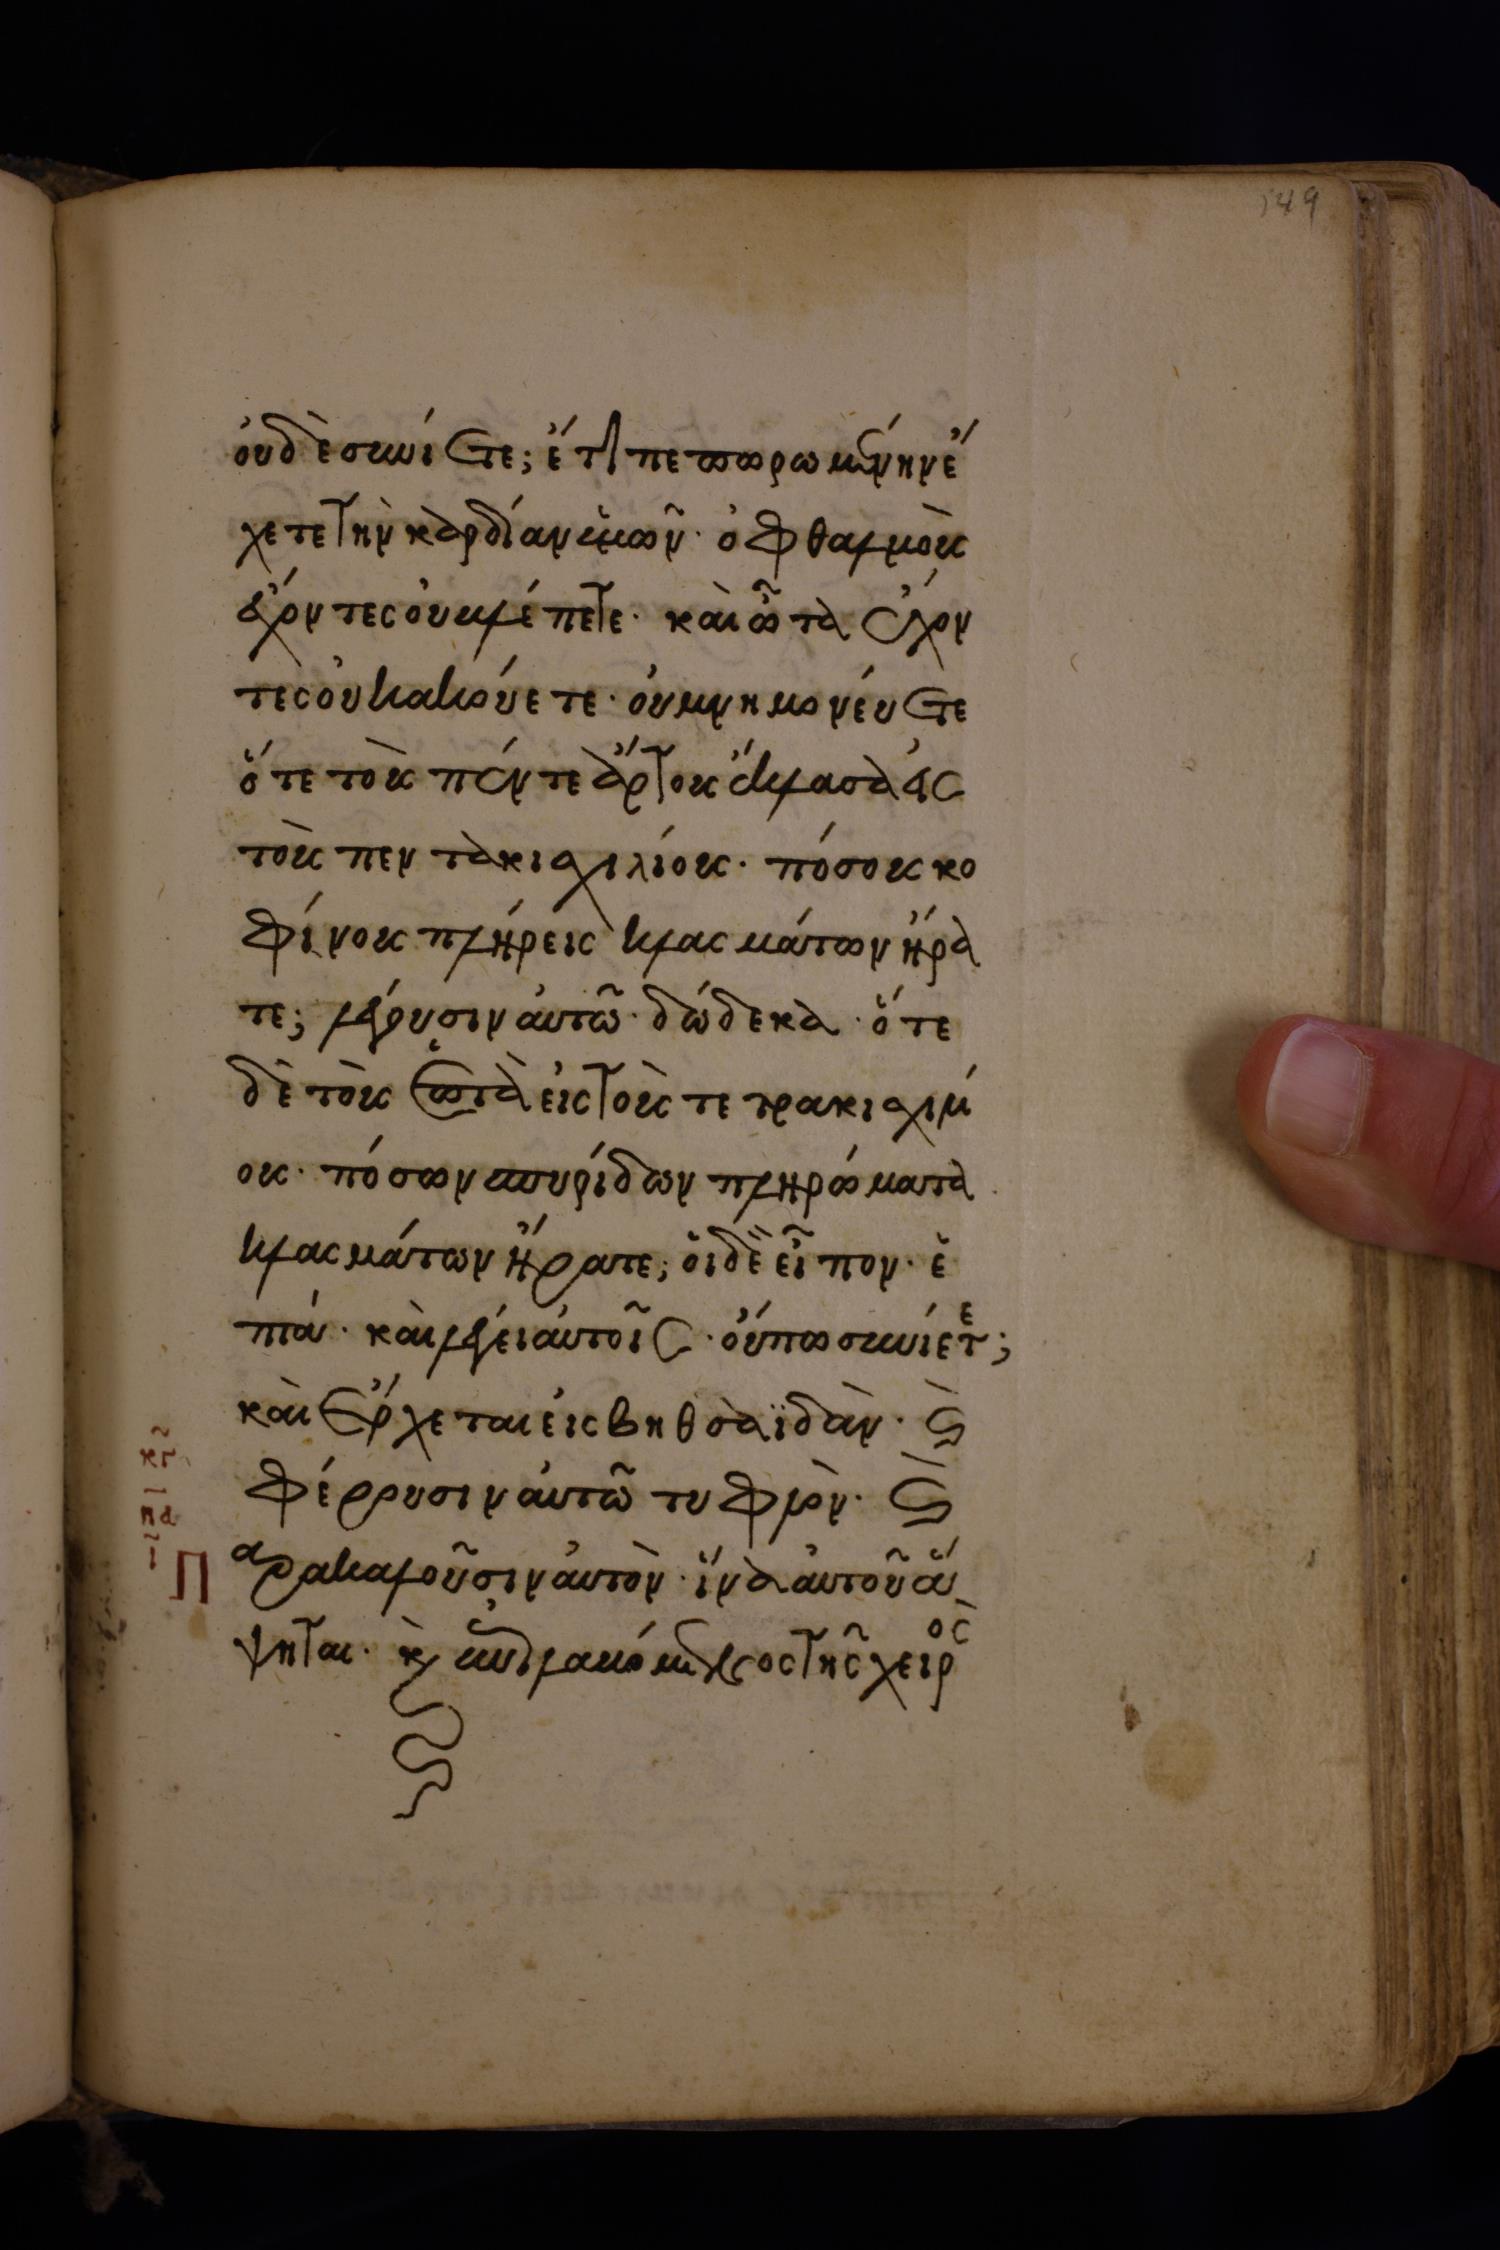 149
οὐδὲ συνίετε; ἔτι πεπωρωμένην ἔ
χετε τὴν καρδίαν ὑμῶν· ὀφθαλμοὺς
ἔχοντες οὐ βλέπετε· καὶ ὦτα ἔχον
τες οὐκ ἀκούετε· οὐ μνημονεύετε
ὅτε τοὺς πέντε ἄρτους ἔκλασα εἰς
τοὺς πεντακισχιλίους· πόσους κο
φίνους πλήρεις κλασμάτων ἤρα
τε; λέγουσιν αὐτῶ· δώδεκα· ὅτε
δὲ τοὺς ἑπτὰ εἰς τοὺς τετρακισχιλί
ους· πόσων σπυρίδων πληρώματα
κλασμάτων ἤρατε; οἱ δὲ εἶπον· ἑ
πτά· καὶ λέγει αὐτοῖς· οὔπω συνίετε;
καὶ ἔρχεται εἰς βηθσαϊδάν· καὶ
φέρουσιν αὐτῶ τυφλὸν· καὶ
Π αρακαλοῦσιν αὐτὸν· ἵνα αὐτοῦ ἅ
ψηται· καὶ ἐπιλαβόμενος τῆς χειρὸς